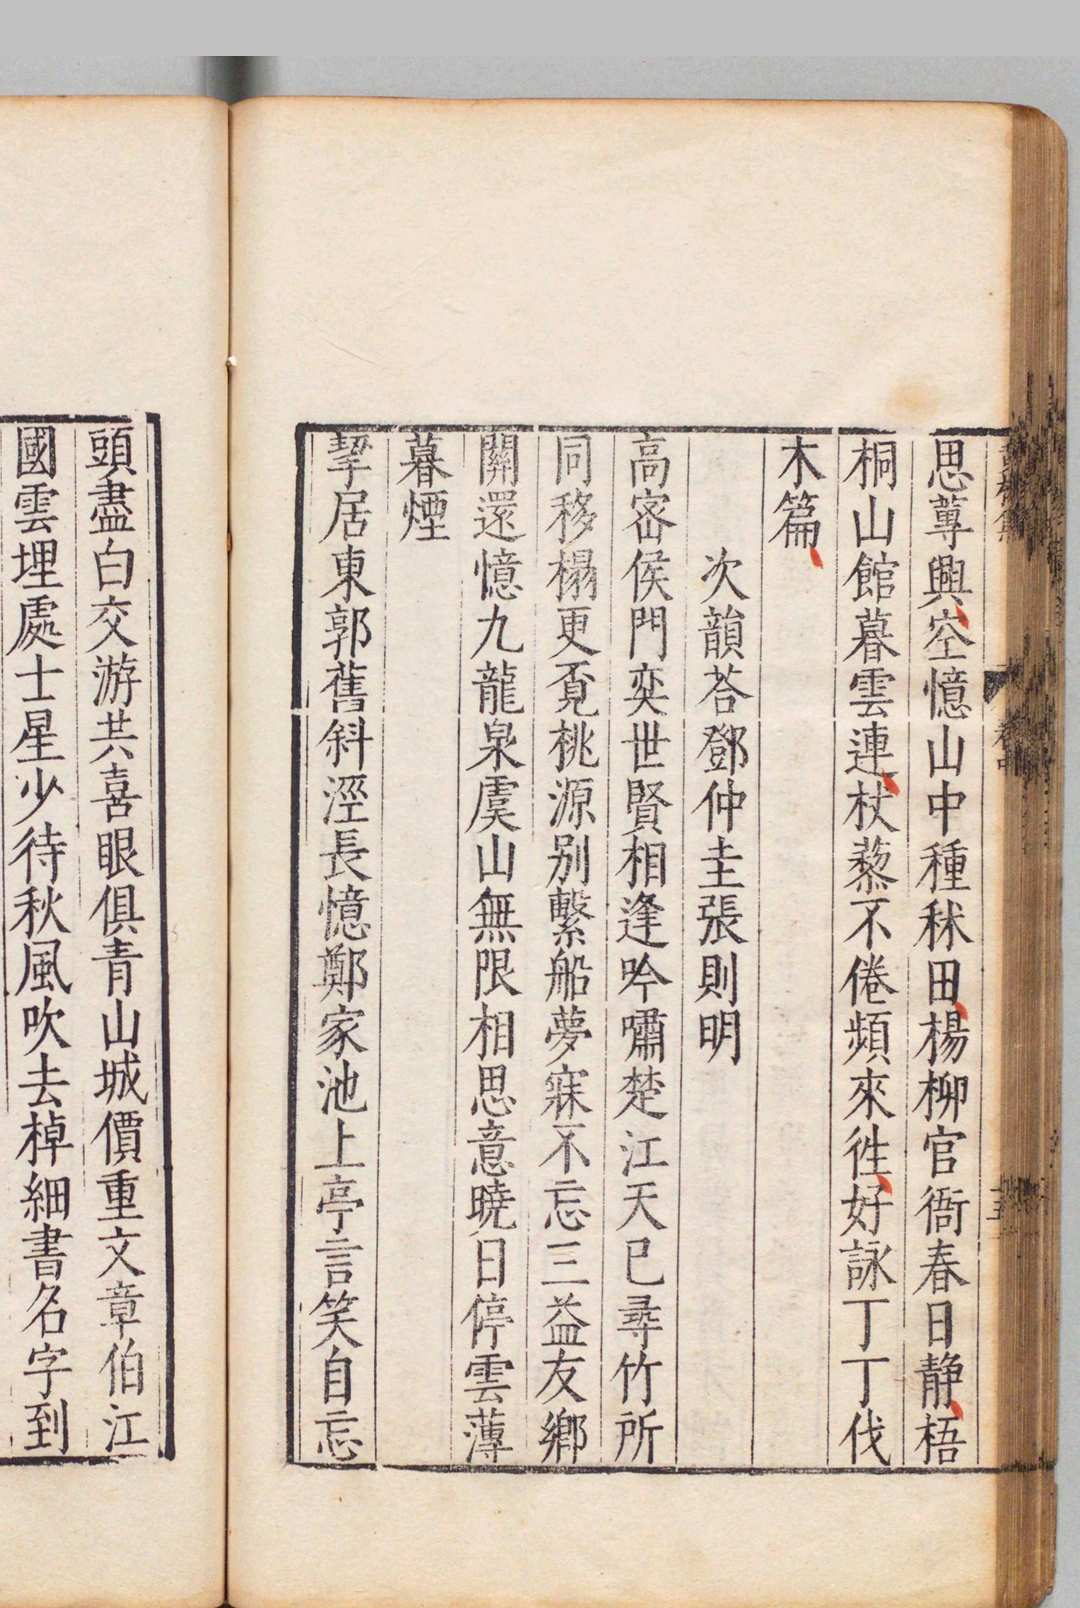 思蓴興空憶山中種秫田楊柳官衙春日靜梧
桐山館暮雲連杖藜不倦頻來徃好詠丁丁伐
木篇
次韻荅鄧仲圭張則明
高宻侯門奕世賢相逢吟嘯楚江天已尋竹所
同移榻更覔桃源别繫船夢寐不忘三益友鄉
關還憶九龍泉虞山無限相思意曉日停雲薄
暮煙
挈居東郭舊斜涇長憶鄭家池上亭言笑自忘
頭盡白交游共喜眼俱青山城價重文章伯江
國雲埋處士星少待秋風吹去棹細書名字到